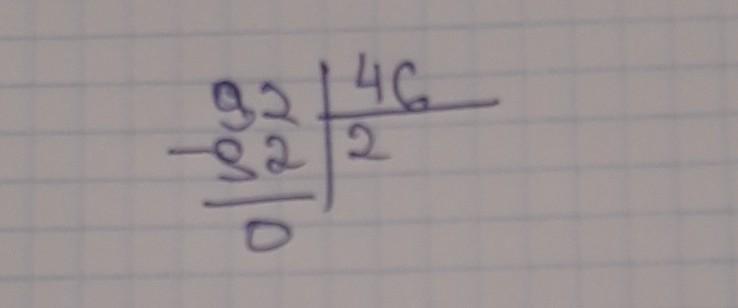 92 46
-92 2
0